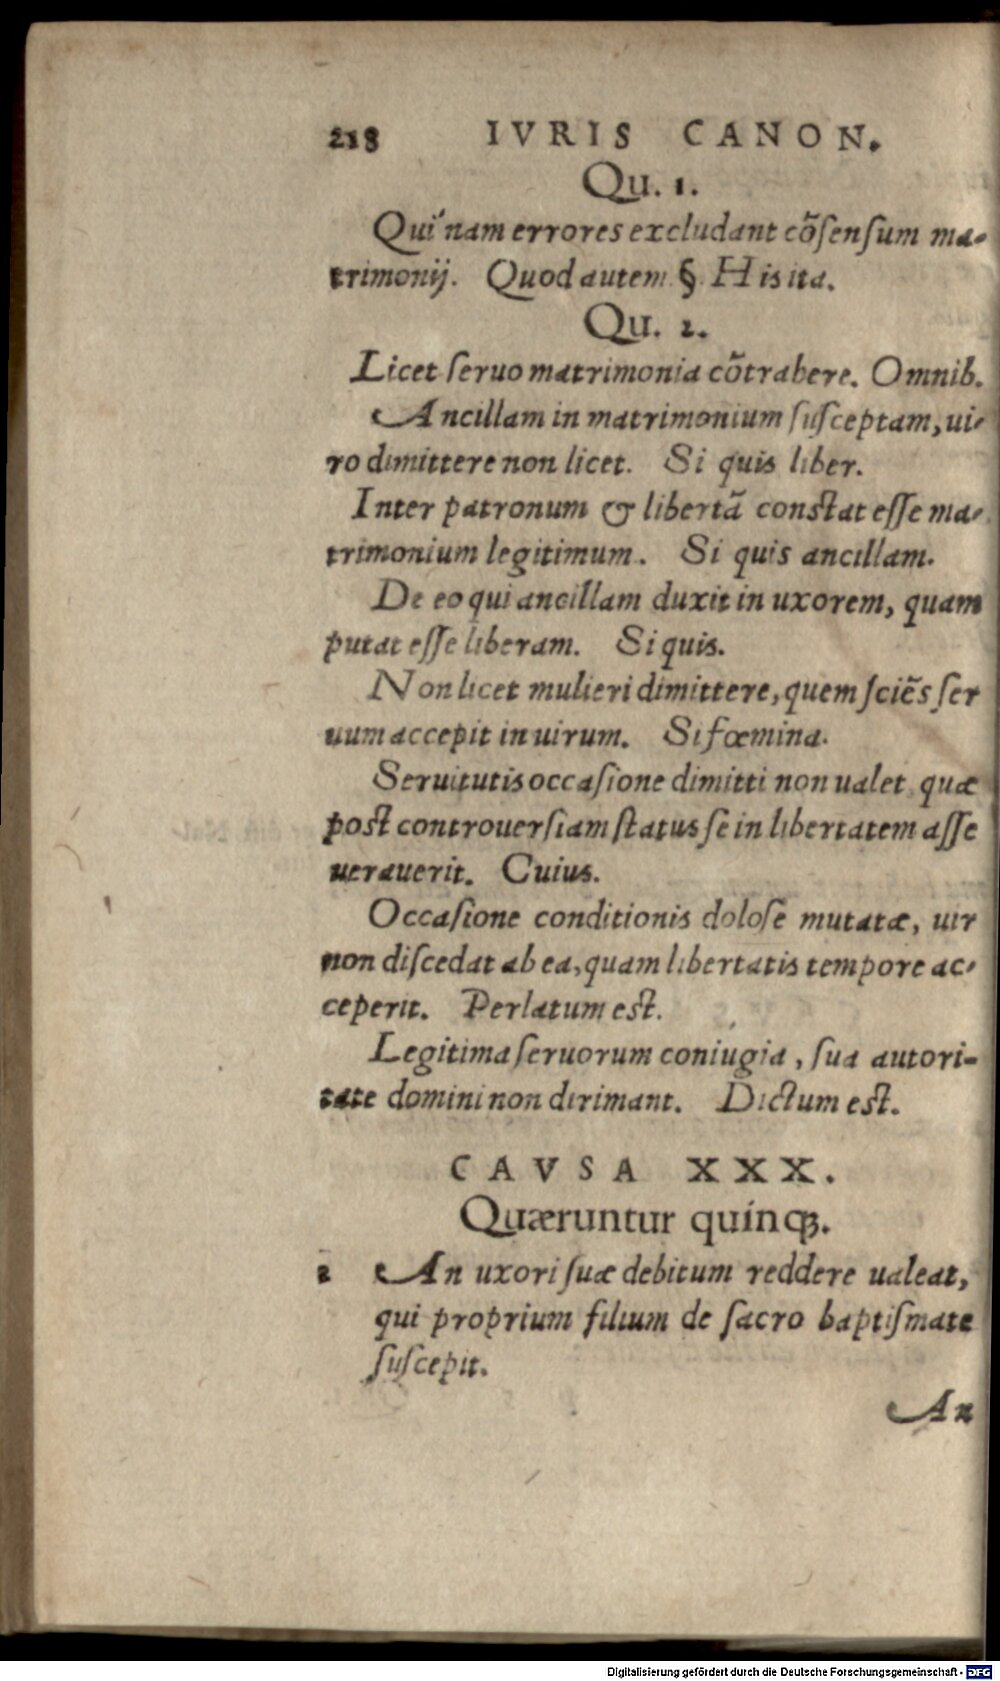 218 IVRIS CANON.
Qu. 1.
Qui'nam errores excludant cõſenſum ma-
trimonij. Quod autem §. His ita.
Qu. 2.
Licet ſeruo matrimonia cõtrahere. Omnib.
Ancillam in matrimonium ſuſceptam, ui-
ro dimittere non licet. Si quis liber.
Inter patronum & libertã conſtat eſſe ma-
trimonium legitimum. Si quis ancillam.
De eo qui ancillam duxit in uxorem, quam
putat eſſe liberam. Si quis.
Non licet mulieri dimittere, quem ſciẽs ſer
uum accepit in uirum. Si fœmina.
Seruitutis occaſione dimitti non ualet, quæ
poſt controuerſiam ſtatus ſe in libertatem aſſe
uerauerit. Cuius.
Occaſione conditionis doloſe mutatæ, uir
non diſcedat ab ea, quam libertatis tempore ac-
ceperit. Perlatum eſt.
Legitima ſeruorum coniugia, ſua autori-
tate domini non dirimant. Dictum eſt.
CAVSA XXX.
Quæruntur quinqꝫ.
1 An uxori ſuæ debitum reddere ualeat,
qui proprium filium de ſacro baptiſmate
ſuſcepit.
An
Digitalisierung gefördert durch die Deutsche Forschungsgemeinschaft - DFG